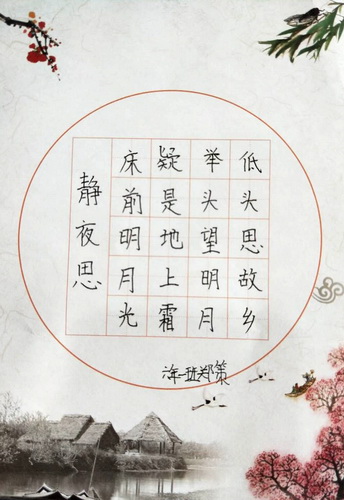 静夜思
床前明月光
疑是地上霜
举头望明月
低头思故乡
六年一班郑策